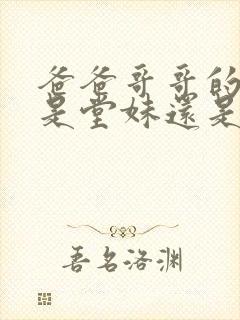 爸爸哥哥的
是堂妹還是
善名洛渊